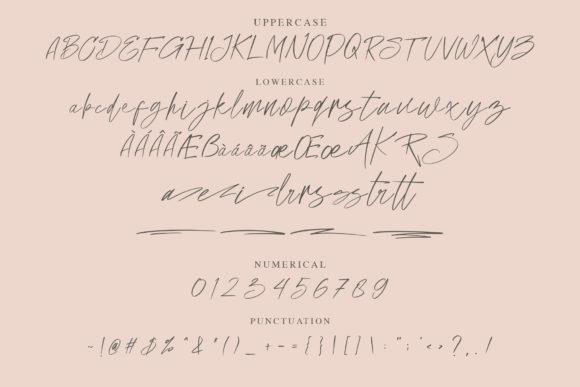 UPPERCASE
ABCDEFGHIJKLMNOPQRSTUVWXYZ
LOWERCASE
abcdefghijklmnopqrstuvwxyz
ÀÁÂÃÄÆBàáâãäæŒœAKRS
azezidrrssstrtt
NUMERICAL
0123456789
PUNCTUATION
~!@#$%^&*()_+-={}|[]\:";'<>?,./